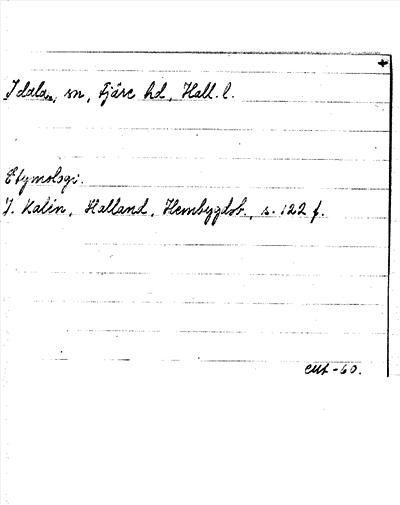 Idala, sn, Fjäre hd, Hall. l.
Etymologi.
J. Kalén, Halland, Hembygdsb., s. 122 f.
-60.